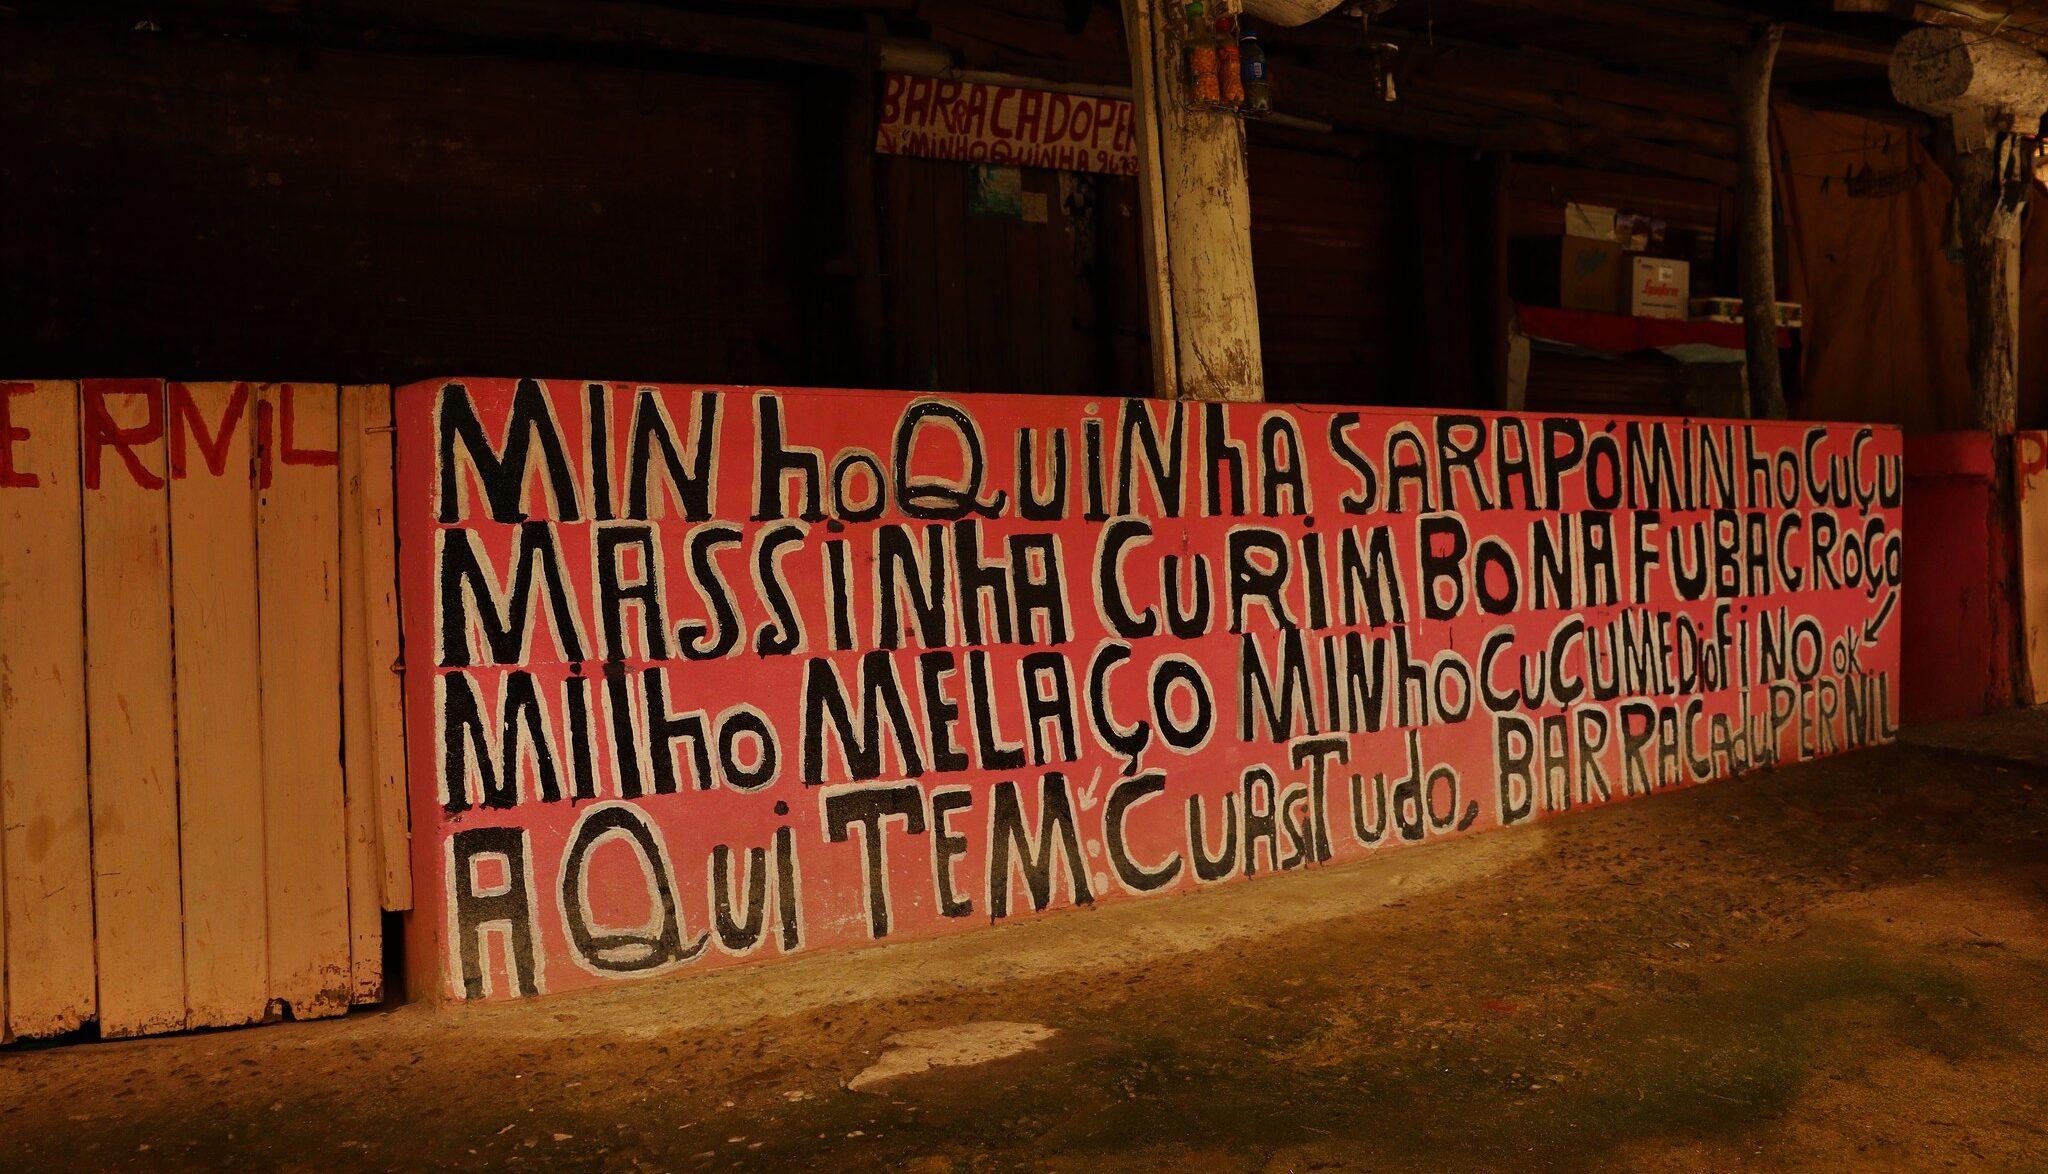 BARRACADOPER
MINHOQUINHA 96
ERMIL
MINhoQuiNhA SARAPÓMINhoCuÇu
MASSiNhA CuRiMBoNA FUBACROÇO
Milho MELAÇO MINhoCuÇUMEDioFiNO OK
AQui TEM: CuASiTudo, BARRACAduPERNiL